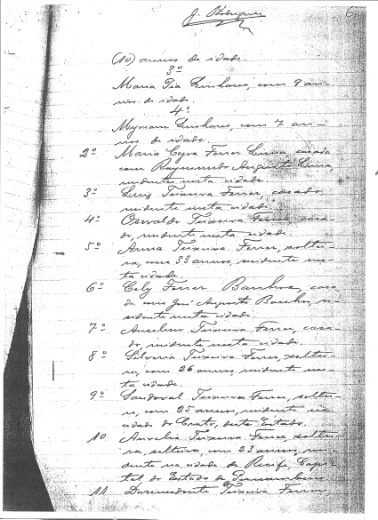 6
(10) annos de idade.
3º
Maria Pia Linhares, com 9 an-
nos de idade.
4º
Myriam Linhares, com 7 an-
nos de idade.
2º Maria Ferrer Lima, casada
com Raymundo Augusto Lima,
residente nesta cidade.
3º Luiz Teixeira Ferrer, casado,
residente nesta cidade.
4º Oswaldo Teixeira Ferrer, casa-
do, residente nesta cidade.
5º Anna Teixeira Ferrer, soltei-
ra, com 33 annos, residente nes-
ta cidade.
6º Cely Ferrer casa-
da com José Augusto re-
sidente nesta cidade.
7º Anselmo Teixeira Ferrer, casa-
do, residente nesta cidade.
8º Teixeira Ferrer, soltei-
ra, com 26 annos, residente nes-
ta cidade.
9º Sandoval Teixeira Ferrer, soltei-
ro, com 25 annos, residente na
cidade do Crato, deste Estado.
10 Aurelia Teixeira Ferrer, soltei-
ra, com 23 annos, resi-
dente na cidade de Recife, Capi-
tal do Estado de Pernambuco
11 Teixeira Ferrer,